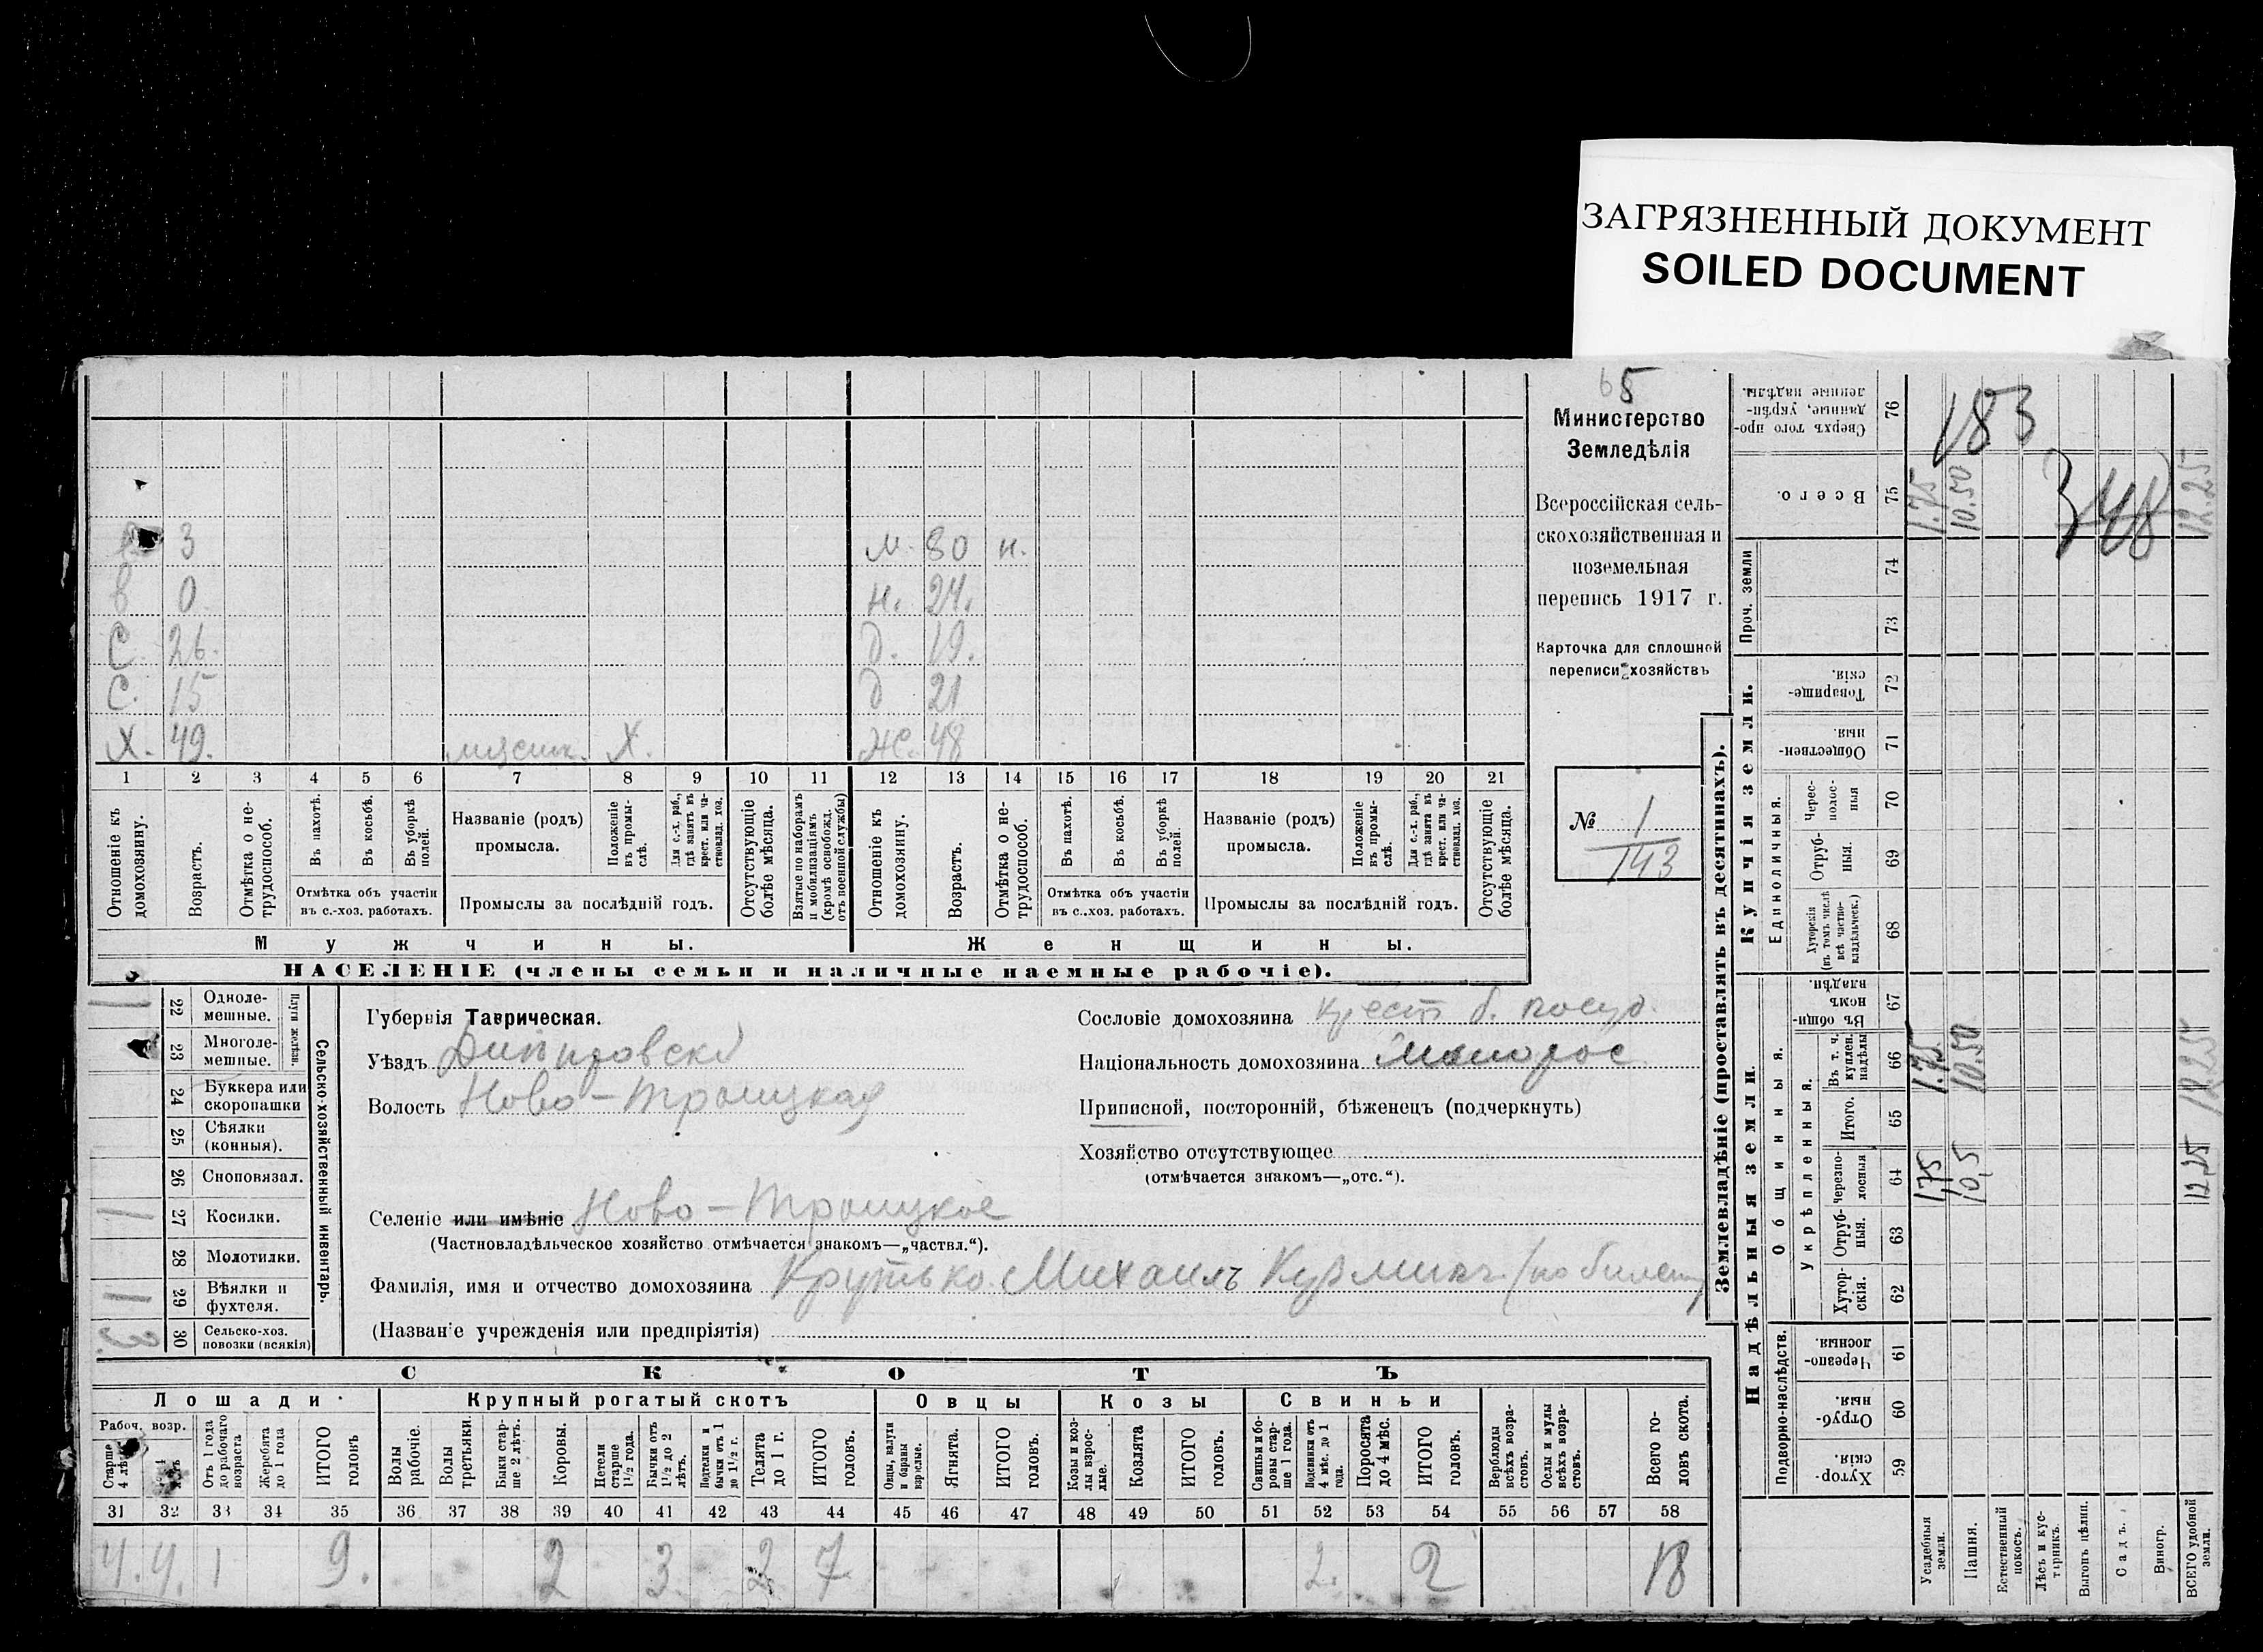 ЗАГРЯЗНЕННЫЙ ДОКУМЕНТ
SOILED DOCUMENT
65
Министерство
Земледѣлія
Всероссійская сель-
скохозяйственная и
поземельная
перепись 1917 г.
Карточка для сплошной
переписи хозяйствъ
№ 1
143
3 м. 80 н.
в 0 н. 24.
С. 26. д. 19.
С. 15 д 21
Х. 49. Х. Ж. 48
1 2 3 4 5 6 7 8 9 10 11 12 13 14 15 16 17 18 19 20 21
Отношеніе къ домохозяину.
Возрастъ.
Отмѣтка о не-трудоспособ.
Въ пахотѣ.
Въ косьбѣ.
Въ уборкѣ полей.
Отмѣтка объ участіи
въ с.-хоз. работахъ.
Названіе (родъ)
промысла.
Положеніе въ промы-слѣ.
Для с.-х. раб., гдѣ занятъ въ крест. или ча-стновлад. хоз.
Промыслы за послѣдній годъ.
Отсутствующіе болѣе мѣсяца.
Взятые по наборамъ и мобилизаціямъ (кромѣ освобожд. отъ военной службы)
Отношеніе къ домохозяину.
Возрастъ.
Отмѣтка о не-трудоспособ.
Въ пахотѣ.
Въ косьбѣ.
Въ уборкѣ полей.
Отмѣтка объ участіи
въ с.-хоз. работахъ.
Названіе (родъ)
промысла.
Положеніе въ промы-слѣ.
Для с.-х. раб., гдѣ занята въ крест. или ча-стновлад. хоз.
Промыслы за послѣдній годъ.
Отсутствующіе болѣе мѣсяца.
Мужчины. Женщины.
НАСЕЛЕНІЕ (члены семьи и наличные наемные рабочіе).
Сельско-хозяйственный инвентарь.
Плуги желѣзн.
1 22 Одноле-мешные.
23 Многоле-мешные.
24 Буккера или скоропашки
25 Сѣялки (конныя).
26 Сноповязал.
1 27 Косилки.
28 Молотилки.
1 29 Вѣялки и фухтеля.
3 30 Сельско-хоз. повозки (всякія)
Губернія Таврическая.
Уѣздъ Днепровскі
Волость Ново-Троицкая
Сословіе домохозяина крест б. госуд.
Національность домохозяина Малорос
Приписной, посторонній, бѣженецъ (подчеркнуть)
Хозяйство отсутствующее
(отмѣчается знакомъ—„отс.“).
Селеніе или имѣніе Ново-Троицкое
(Частновладѣльческое хозяйство отмѣчается знакомъ—„частвл.“).
Фамилія, имя и отчество домохозяина Крутько Михаилъ Кузмичъ (по билету)
(Названіе учрежденія или предпріятія)
СКОТЪ
Лошади Крупный рогатый скотъ Овцы Козы Свиньи
Рабоч. возр.
Старше 4 лѣтъ
Отъ 1 года до рабочаго возраста
Жеребята до 1 года
ИТОГО головъ
Волы рабочіе.
Волы третьяки.
Быки стар-ше 2 лѣтъ.
Коровы.
Нетели старше 1 1/2 года.
Бычки отъ 1 1/2 до 2 лѣтъ.
Подтелки и бычки отъ 1 до 1 1/2 г.
Телята до 1 г.
ИТОГО головъ.
Овцы, валухи и бараны взрослые.
Ягнята.
ИТОГО головъ.
Козы и коз-лы взрос-лые.
Козлята
ИТОГО головъ.
Свиньи и бо-ровы стар-ше 1 года.
Подсвинки отъ 4 мѣс. до 1 года.
Поросята до 4 мѣс.
ИТОГО головъ.
Верблюды всѣхъ возра-стовъ.
Ослы и мулы всѣхъ возра-стовъ.
Всего го-ловъ скота.
31 32 33 34 35 36 37 38 39 40 41 42 43 44 45 46 47 48 49 50 51 52 53 54 55 56 57 58
4. 4. 1 9. 2 3. 2 7 2. 2 18
Землевладѣніе (проставлять въ десятинахъ).
Купчія земли.
Надѣльныя земли.
183
348
Сверхъ того про-данные, укрѣп-ленные надѣлы. 76
Всего. 75 1.75 10.50 12.25
Проч. земли
74
73
Товарище-скія. 72
Обществен-ныя 71
Единоличныя.
Черес-полос-ныя 70
Отруб-ныя. 69
Хуторскія (въ томъ числѣ всѣ частно-владѣльческ.) 68
Общинныя.
Въ общи-номъ владѣн. 67
Укрѣпленныя.
Въ т. ч. куплен. надѣлы 66 1.75 10.50 12.25
Итого. 65
Черезпо-лосныя 64 1,75 10,5 12,25
Отруб-ныя. 63
Хутор-скія. 62
Подворно-наслѣдств.
Черезпо-лосныя. 61
Отруб-ныя. 60
Хутор-скія. 59
Усадебныя земли.
Пашня.
Естественный покосъ.
Лѣсъ и кус-тарникъ.
Выгонъ цѣлин.
Садъ.
Виногр.
ВСЕГО удобной земли.